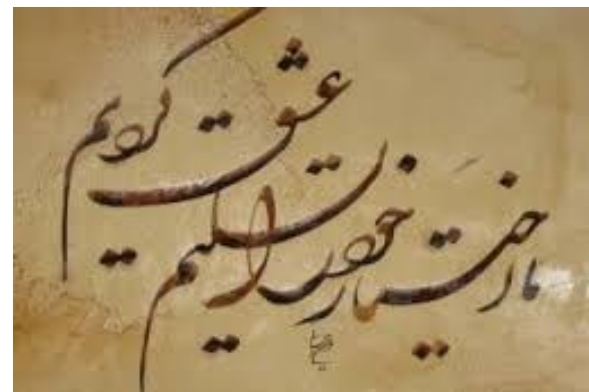 ما اختیار خود را تسلیم عشق کردیم